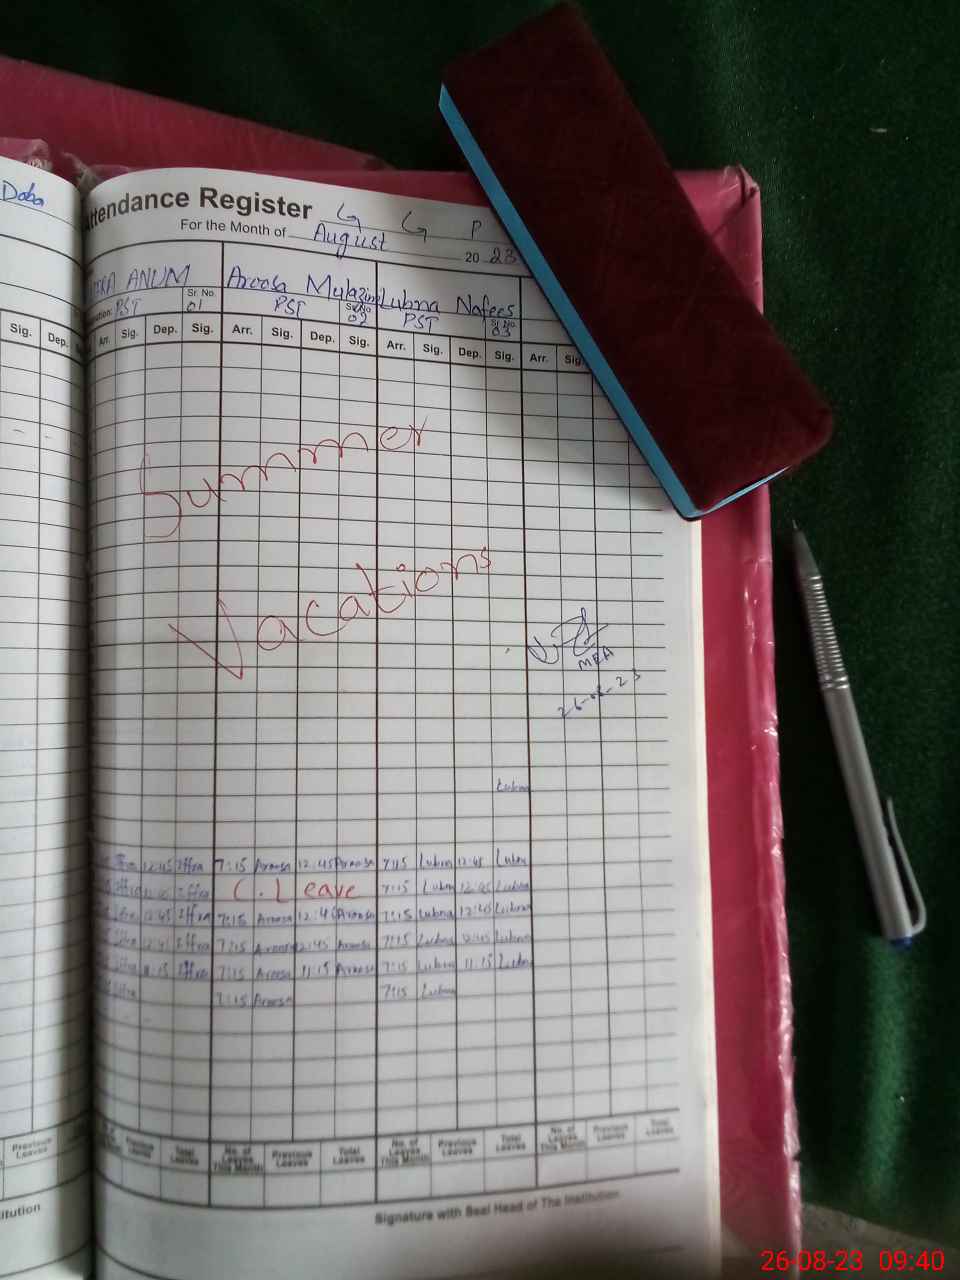 Doba
Attendance Register G G P
For the Month of August 2023
ANUM Aroosa Mulazim Lubna Nafees
PST Sr. No. 01 PST Sr. No. 02 PST Sr. No. 03
Sig. Dep. Arr. Sig. Dep. Sig. Arr. Sig. Dep. Sig. Arr. Sig. Dep. Sig. Arr. Sig.
Summer
Vacations
MEA
26-08-23
Lubna
12:45 Iffra 7:15 Aroosa 12:45 Aroosa 7:15 Lubna 12:45 Lubna
Iffra C. Leave 7:15 Lubna 12:45 Lubna
12:45 Iffra 7:15 Aroosa 12:45 Aroosa 7:15 Lubna 12:45 Lubna
12:45 Iffra 7:15 Aroosa 12:45 Aroosa 7:15 Lubna 12:45 Lubna
Iffra 11:15 Iffra 7:15 Aroosa 11:15 Aroosa 7:15 Lubna 11:15 Lubna
Iffra 7:15 Aroosa 7:15 Lubna
Previous Leaves Previous Leaves Total Leaves No. of Leaves This Month Previous Leaves Total Leaves No. of Leaves This Month Previous Leaves Total Leaves No. of Leaves This Month Previous Leaves Total Leaves
Signature with Seal Head of The Institution
26-08-23 09:40